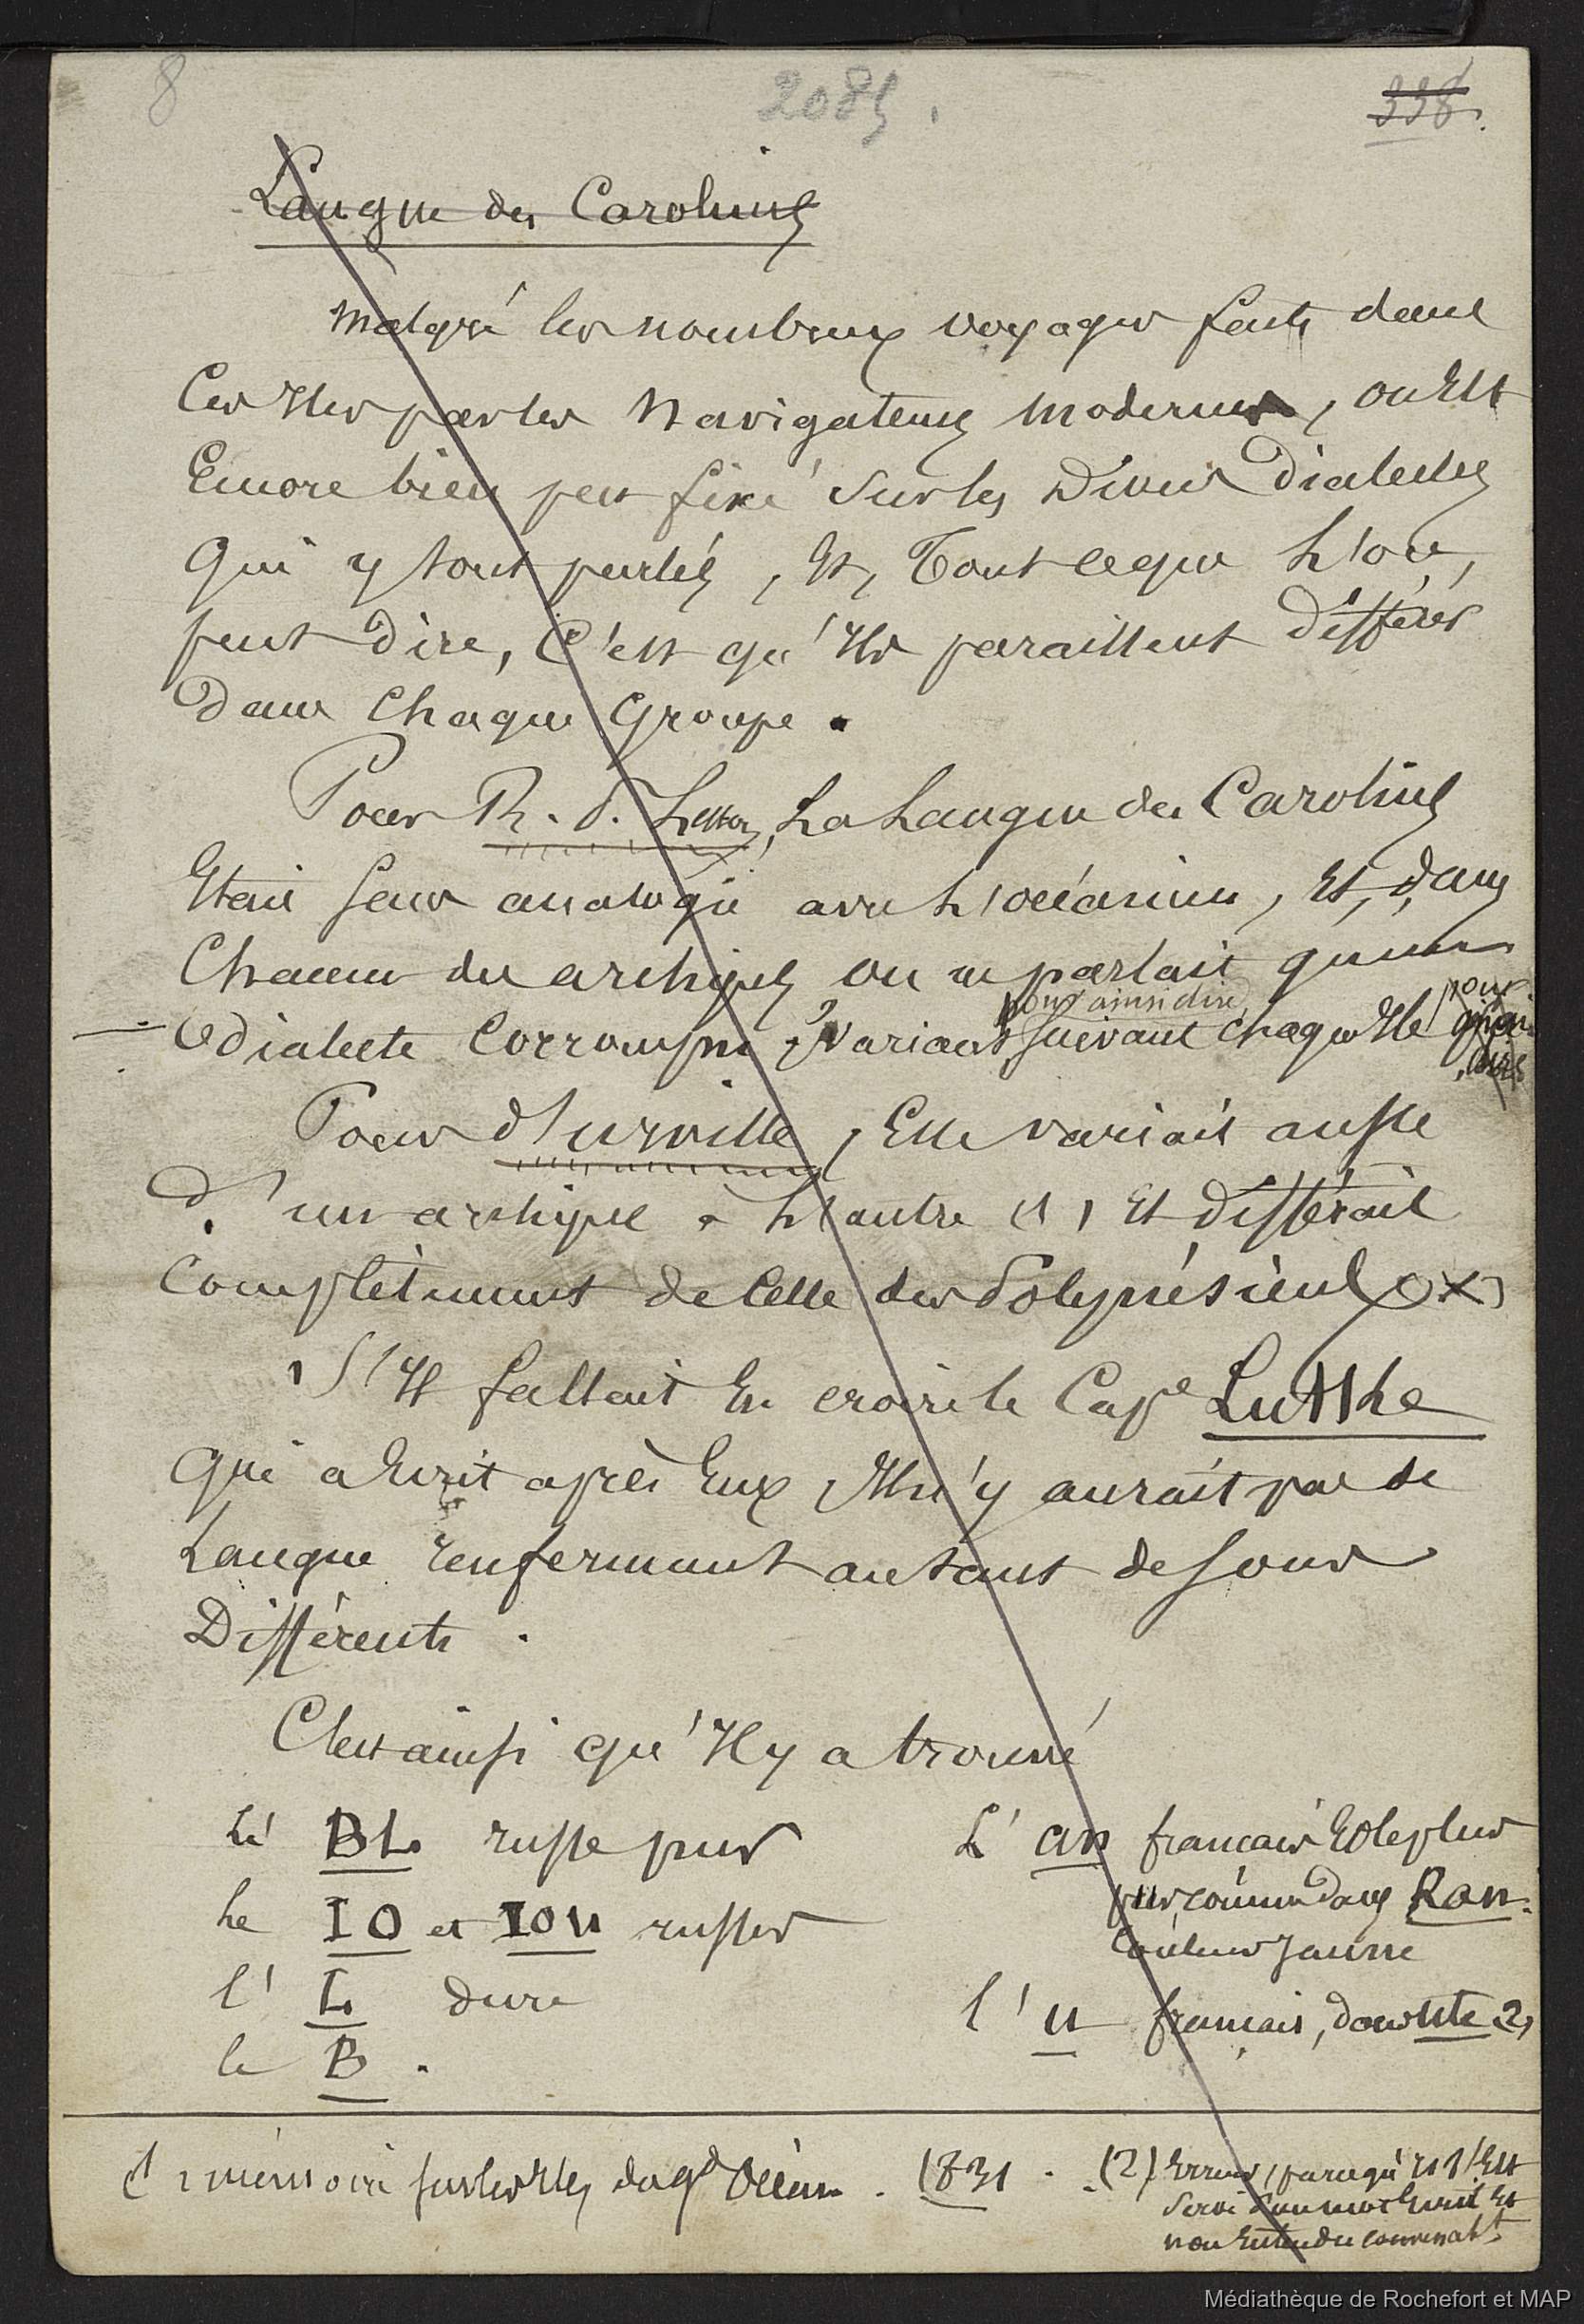 8
2085.
338.
Langue des Carolines
Malgré les nombreux voyages faits dans
Ces Iles par les Navigateurs modernes, on Est
Encore bien peu fixé sur les Divers Dialectes
qui y sont parlés, Et, Tout ce que L'on,
peut Dire, C'est qu'Ils paraissent Différer
Dans Chaque Groupe.
Pour R. P. Lesson, La Langue des Carolines
Etait sans analogie avec L'océanien, Et, dans
Chacun des archipels on ne parlait qu'un
pour ainsi dire, pour
Dialecte Corrompu, variant suivant chaque Ile
dire
Pour d'urville, Elle variait aussi
D'un archipel à L'autre (1) Et Différait
Complètement de Celle des Polynésiens (x)
S'Il fallait En croire le Cape Lutthe
Qui a Ecrit après Eux, Il n'y aurait pas de
Langue renfermant autant de sons
Différents.
C'est ainsi qu'Il y a trouvé
Le BL russe pur
L' an français Le plus
pur, comme dans Ran.
Couleur Jaune
Le IO et IOU russes
l' L dure
l' u français, dans ute (2)
le B.
(1) mémoire sur les Iles du gd Océan. 1831.
(2) Erreur, parcequ'il s'Est
servi d'un mot Ecrit Et
non Entendu convenabt.
Médiathèque de Rochefort et MAP